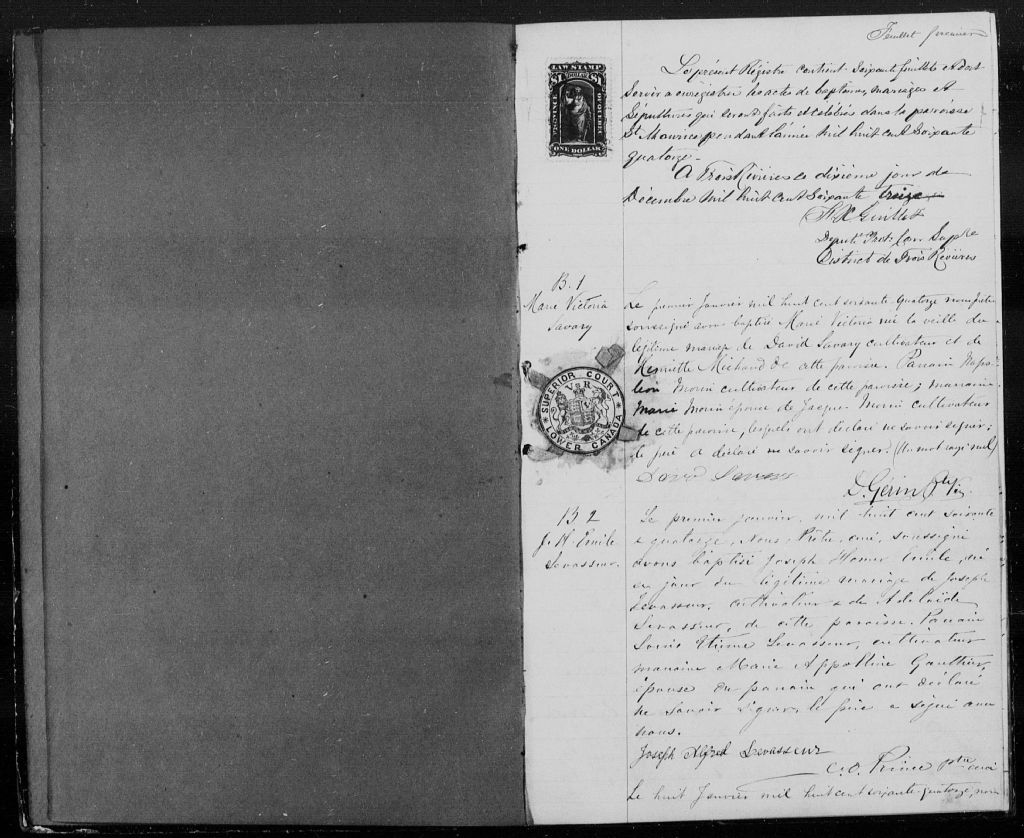 Feuillet premier
LAW STAMP
$1 DOLLAR $1
PROVINCE OF QUEBEC
ONE DOLLAR
Le présent Régistre contient soixante feuillets et doit
servir a enrégistrer les actes de baptêmes, mariages et
sépultures qui seront faits et célébrés dans la paroisse
St Maurice pendant l'année mil huit cent soixante
quatorze.
A Trois Rivières ce dixième jour de
Décembre mil huit cent soixante treize
Guillet
Député Prot. Cour Supre
District de Trois Rivières
B. 1
Marie Victoria
Savary
Le premier Janvier mil huit cent soixante-quatorze nous prêtre
soussigné avons baptisé Marie Victoria née la veille du
légitime mariage de David Savary cultivateur et de
Henriette Michaud de cette paroisse. Parrain Napo-
léon Morin cultivateur de cette paroisse; marraine
Marie Morin épouse de Jacques Morin cultivateur
de cette paroisse, lesquels ont déclaré ne savoir signer;
le père a déclaré ne savoir signer. (Un mot rayé nul)
SUPERIOR COURT
V R
LOWER CANADA
D. Gérin Ptre
B 2
J. H. Emile
Levasseur.
Le premier janvier, mil huit cent soixante
& quatorze, Nous Prêtre, curé, soussigné
avons baptisé Joseph Homer Emile, né
ce jour du légitime mariage de Joseph
Levasseur, cultivateur & de Adelaïde
Levasseur, de cette paroisse. Parrain
Louis Etienne Levasseur, cultivateur
marraine Marie Appolline Gauthier,
épouse du parrain qui ont déclaré
ne savoir signer, le père a signé avec
nous.
Joseph Alfred Levasseur
C. O. Prince Ptre curé
Le huit Janvier mil huit cent soixante-quatorze, nous